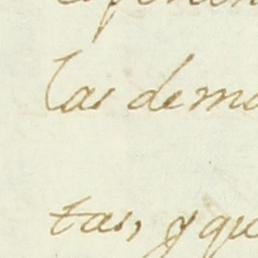 las dema
tas, y que